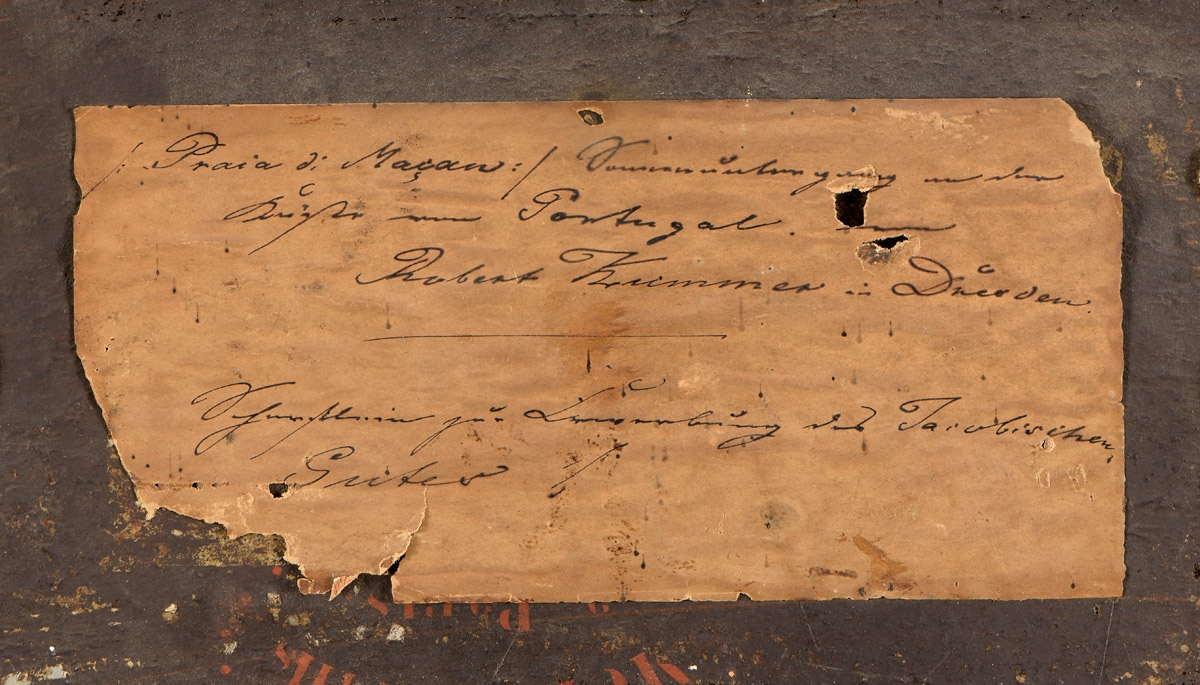 /: Praia di Maçan :/ Sonnenuntergang an der
Küste von Portugal. von
Robert Kummer in Dresden.
Scherflein zur Erwerbung des Jacobischen
Gutes
Paris